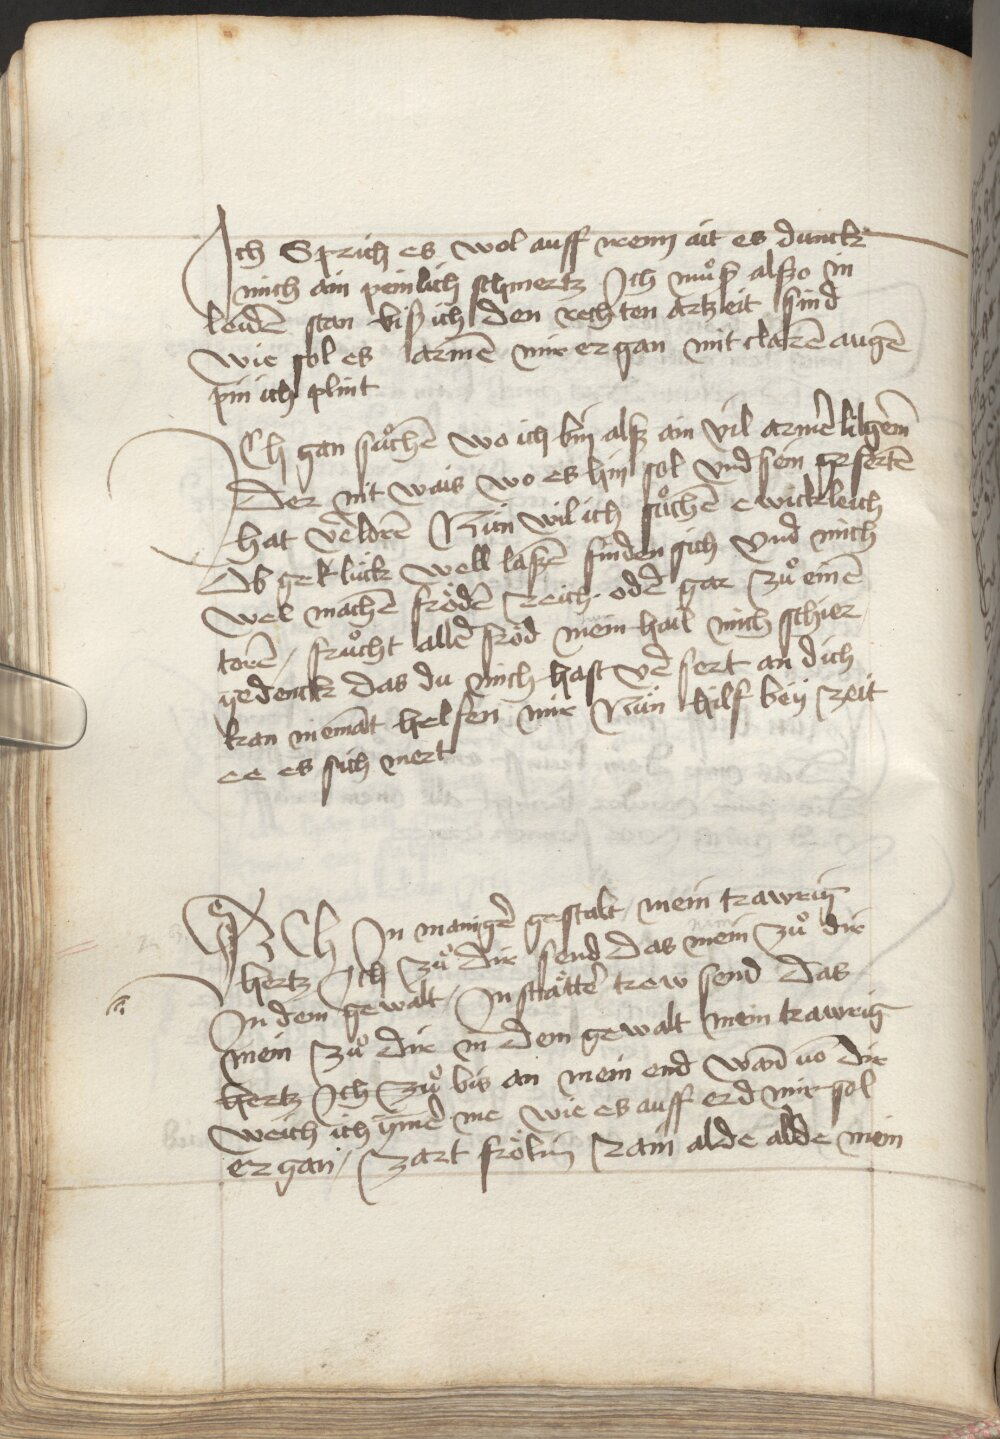 Ich Sprich es wol auff mein ait es dunck
mich ain peinlich schmertz Ich muͦß alßo in
leidē stan biß ich den rechten artzeit find
wie sol es armē mir ergan mit clarē augē
pin ich plint
Ich gan suͦchē wo ich bin alß ain vil armē bilgerin
Der nit wais wo es hin sol vnd sein geferte
hat v̄lorē Nun wil ich suͦchē ewickleich
Ob geklück well laßē finden sich vnd mich
wel machē froͤdē reich oder gar zuͦ einē
torē / frucht aller froͤd mein hail mich schier
gedenck das du mich hast v̄sert an dich
kan niemāt helfen mir Nun hilf beÿ zeit
ee es sich mert
Ich In maniger gestalt / mein trawrig
hertz Ich zuͦ dir send das mein zuͦ dir
In dem gewalt / In staͤtter trew send das
mein zuͦ dir in dem gewalt mein trawrig
hertz Ich zuͦ bis an mein end wan̄ vō dir
weich ich ȳmer me wie es auff erd mir sol
ergan / zart froͤlin rain alde alde mein